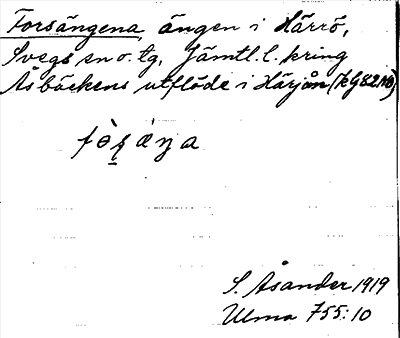 Forsängena, ängen i Härrö,
Svegs sn o. tg, Jämtl. l. kring
Åsbäckens utflöde i Härjån (kg 82 NO)
fò̱ṣäŋa
S. Åsander 1919
Ulma 755:10